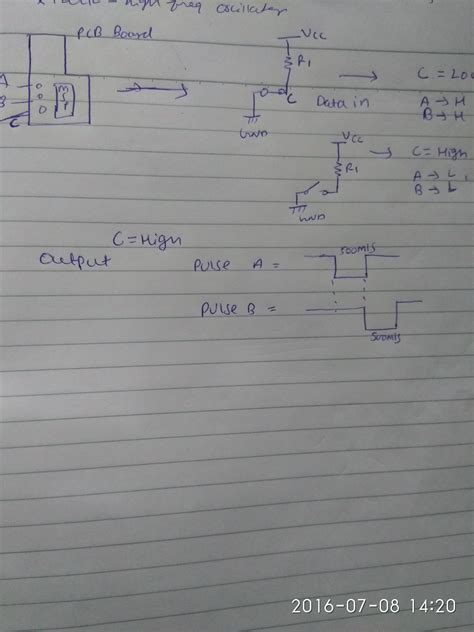 = high freq oscillator
PCB Board
VCC
R1
A
B
C
C
C = Low
Data in
A → H
B → H
GND
VCC
R1
C = High
A → L,
B → L
GND
C = High
Output
Pulse A =
500ms
Pulse B =
500ms
2016-07-08 14:20